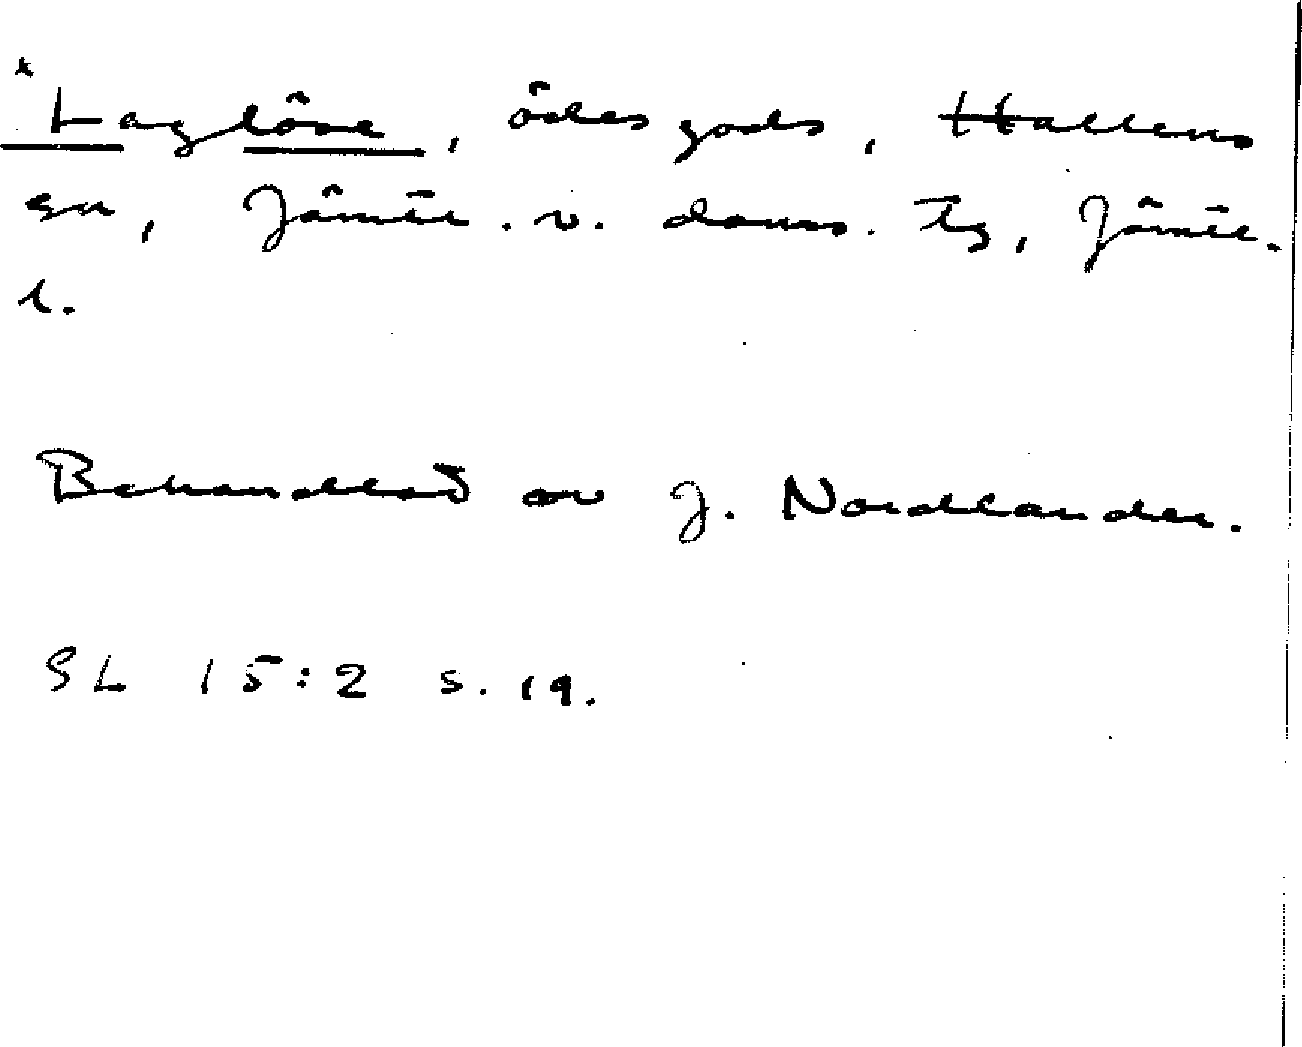 *Laglöse, ödesgods, Hallens
sn, Jämtl. v. doms. tg, Jämtl.
l.
Behandlad av J. Nordlander.
SL 15:2 s. 19.